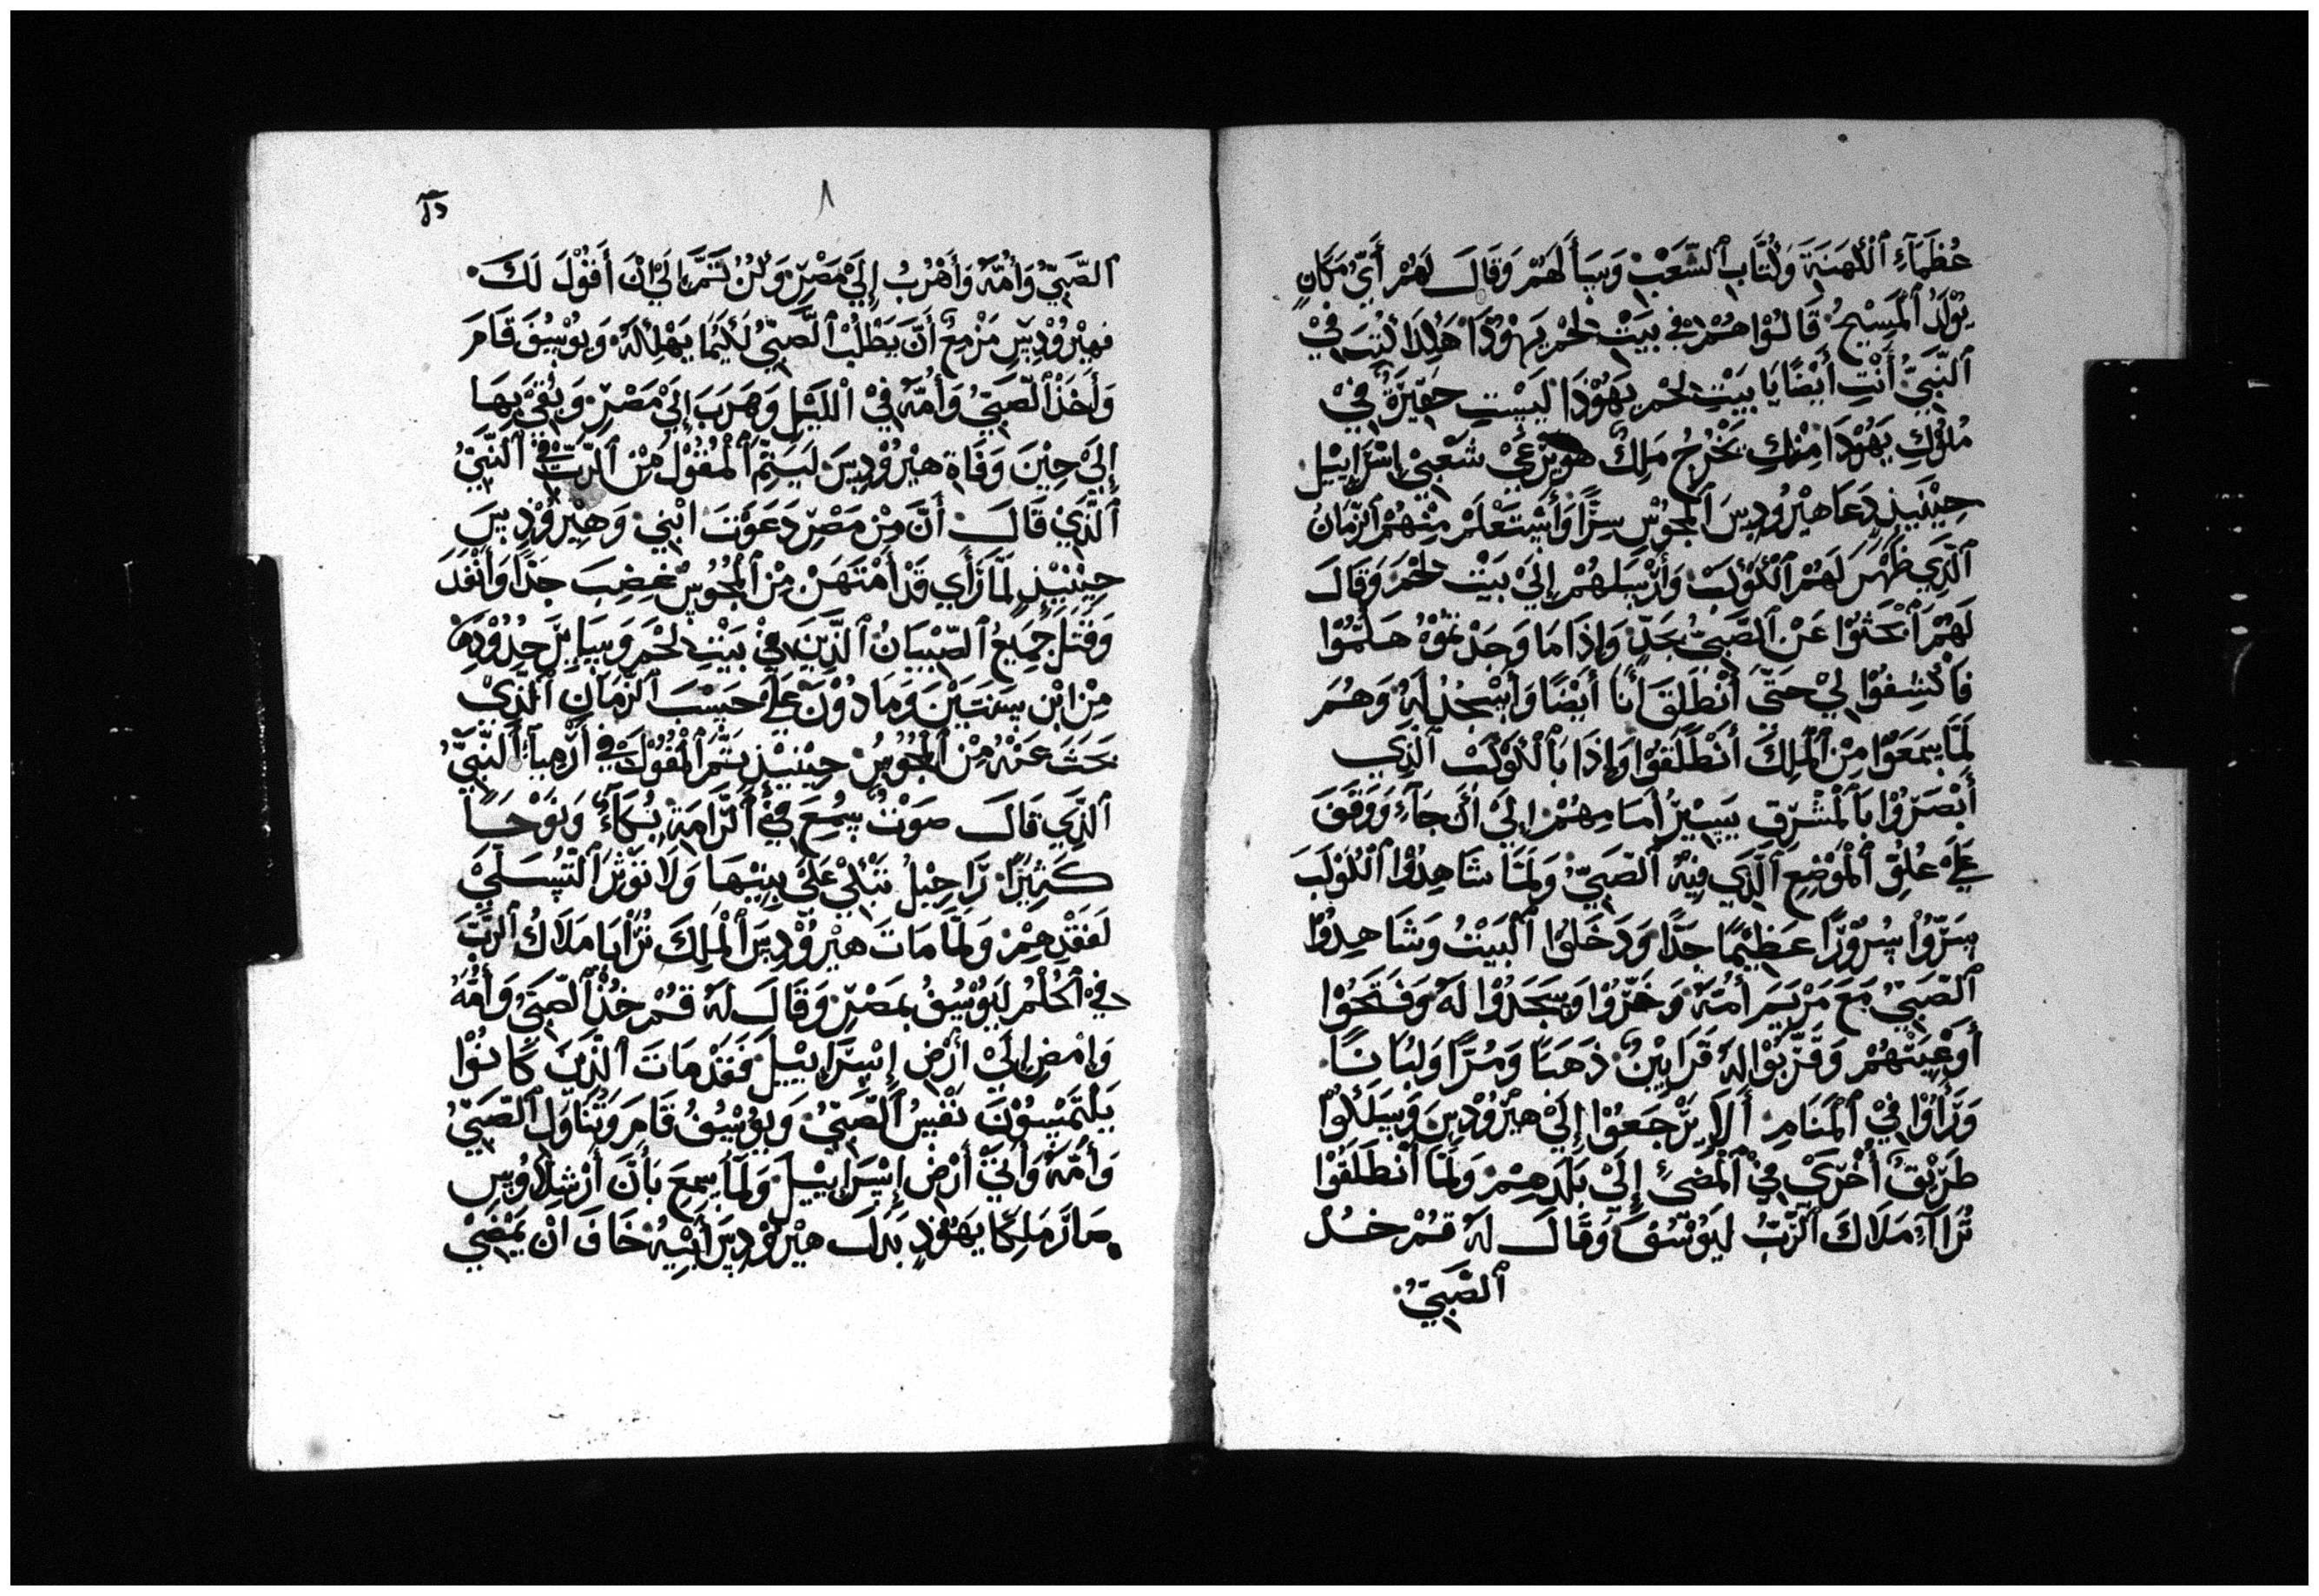 عُظَمَآءِ ٱلْكَهَنَةَ وَكُتَّابِ ٱلشَّعَبْ وَسَأَلَهُمْ وَقَالَ لَهُمْ أَيِّ مَكَانٍ
يُوْلَدُ ٱلْمَسِيْحُ قَالُوْا هُمْ فِيْ بَيْتْ لَحْمِ يَهُوْدَا هَكَذَا كُتِبَ فِيْ
ٱلنَّبِيِّ أَنْتِ أَيْضًا يَا بَيْتِ لَحْمِ يَهُوْدَا لَيْسْتِ حَقِيْرَةٌ فِيْ
مُلُوْكِ يَهُوْدَا مِنْكِ يَخْرُجُ مَلِكٌ هو يَرْعَيْ شَعْبِيْ إِسْرَإِيْيْلَ
حِيْنَيِذٍ دَعَا هِيْرُوْدِسَ ٱلْمَجُوْسِ سِرًّا وَأَسْتَعْلَمْ مِنْهُمْ ٱلزَّمَانُ
ٱلَّذِي ظَهَرَ لَهُمْ ٱلْكَوْكَبْ وَأَرْسَلَهُمْ إِلَيْ بَيْتْ لَحْمَ وَقَالَ
لَهُمْ ٱبْحَثُوْا عَنْ ٱلصَّبِيِّ بِجَدٍّ وَإِذَا مَا وَجَدْتُمُوْهُ هَلَمُّوْا
فَأكْشِفُوْا لِيْ حَتَّى أَنْطَلَقَ أَنَا أَيْضًا وَأَسْجُدْ لَهُ وَهُمَ
لَمَّا سَمَعَوْا مِنْ ٱلْمَلِكَ أَنْطَلَقَوْا وَإِذَا بَٱلْكَوْكَبْ ٱلَّذِي
أَبْصَرُوْا بَٱلْمَشْرِقِ يَسِيْرُ أَمَامِهُمْ إِلَيْ أَنْ جَآءَ وَوَقَفَ
عَلَىْ عُلِوِّ ٱلْمَوْضِعِ ٱلَّذِي فِيْهُ ٱلصَّبِيُّ وَلَمَّا شَاهِدُوْا ٱلْكَوْكَبَ
سَرُّوْا سُرُوْرًا عَظِيْمًا جَدًّا وَدَخَلُوْا ٱلْبَيْتُ وَشَاهِدُوْا
ٱلصَّبِيْ مَعَ مَرْيَمَ أُمُّهُ وَخَرُّوْا وَسَجَدُوْا لَهُ وَفَتَحَوْا
أَوْعِيَتْهُمْ وَقَرَّبُوْا لَهُ قَرَابِيْنٌ ذَهَبًا وَمُرًّا وَلُبَانًا
وَرَأُوْا فِيْ ٱلْمَنَامِ أَلَا يَرْجَعُوْا إِلَيْ هِيْرُوْدِسَ وَسَلَكُوْا
طَرِيْقٌ أُخْرَيْ فِيْ ٱلْمُضِيِّ إِلَيْ بَلَدِهِمْ وَلَمَّا أَنْطَلَقُوْا
تُرَاآءَ مَلَاكَ ٱلرَّبِّ لَيُوْسُفَ وَقَالَ لَهُ قُمْ خُذْ
ٱلصَّبِيُّ
٨
ٱلصَّبِيُّ وَأُمِّهُ وَأَهْرُبُ إِلَيْ مَصْرَ وَكُنْ تَمَّ إِلَيْ أَنْ أَقُوْلَ لَكَ
فهِيْرُوْدِسَ مَزْمِعٌ أَنَّ يَطْلُبْ ٱلصَّبِيُّ لَكَيْمَا يَهْلِكْهُ وَيُوْسُفَ قَامَ
وَأَخَذْ ٱلصَّبِيُّ وَأُمُّهُ فِيْ الْلَيْلِ وَهَرَبَ إِلَيْ مَصْرَ وَبُقِيَ بِهَا
إِلَيْ حِيْنَ وَفَاةِ هِيْرُوْدِسَ لَيَتِمَّ ٱلْمَقُوْلْ مِنْ ٱلرَّبِّ فِيْ ٱلنَّبِيُّ
ٱلَّذِيْ قَالَ أَنَّ مِنْ مَصْرَ دَعَوْتَ ابْنِيْ وَهِيْرُوْدِسَ
حِيْنَيْذٍ لَمَّا رَأَي قَدْ أَمْتَهَنْ مِنْ ٱلْمَجُوْسْ غَضِبَ جَدًّا وَأَنْفَذَ
وَقَتَلَ جَمِيْعُ ٱلصِّبْيَانُ ٱلَّذِيْنَ فِيْ بَيْتِ لَحْمَ وَسَايِرَ حِدُوْدِهَا
مِنْ ابْنِ سَنَتَيْنَ وَمَا دُوْنَ عَلَى حَسْبَ ٱلزَّمَانِ ٱلَّذِيْ
بَحَثَ عَنْهُ مِنْ ٱلْمَجُوْسِ حِيْنَيْذٍ تَمَّ ٱلْمَقُوْلَ فِي أَرْمِيآءُ ٱلنَّبِيُّ
ٱلَّذِي قَالَ صَوْتٌ سُمِعَ فِيْ ٱلرَّامَةِ بُكَآءٌ وَنَوْحًا
كَثِيْرًا رَاحِيْلُ تَبْكِيْ عَلَى بِنِيْهَا وَلَا تُوْثِرَ ٱلتَّسَلِّيَ
لَفَقْدِهِمْ وَلَمَّا مَاتَ هِيْرُوْدِسَ ٱلْمَلِكَ تُرَأَيَا مَلَاكُ ٱلرَّبَّ
فِيْ ٱلْحُلْمُ لَيُوْسُفُ بِمَصْرَ وَقَالَ لَهُ قُمْ خُذْ ٱلصَّبِيُّ وَأُمُّهُ
وَامْضِ إِلَيْ أَرْضِ إِسْرَإِيْيْلَ فَقَدْ مَاتَ ٱلَّذِيْنَ كَانُوْا
يَلْتَمْسُوْنَ نَفْسُ ٱلصَّبِيُّ وَيُوْسُفُ قَامَ وَتَنَاوَلَ ٱلصَّبِيُّ
وَأُمَّهُ وَأَتَيَ أَرْضَ إِسْرَإِيْيْلَ وَلَمَّا سِمِعَ بَأَنَّ أَرْشِلَاوُسِ
صَارَ مَلِكًا يَهُوْدِ بَدَلَ هِيْرُوْدِسَ أَبِيْهِ خَافَ انْ يَمْضِيْ